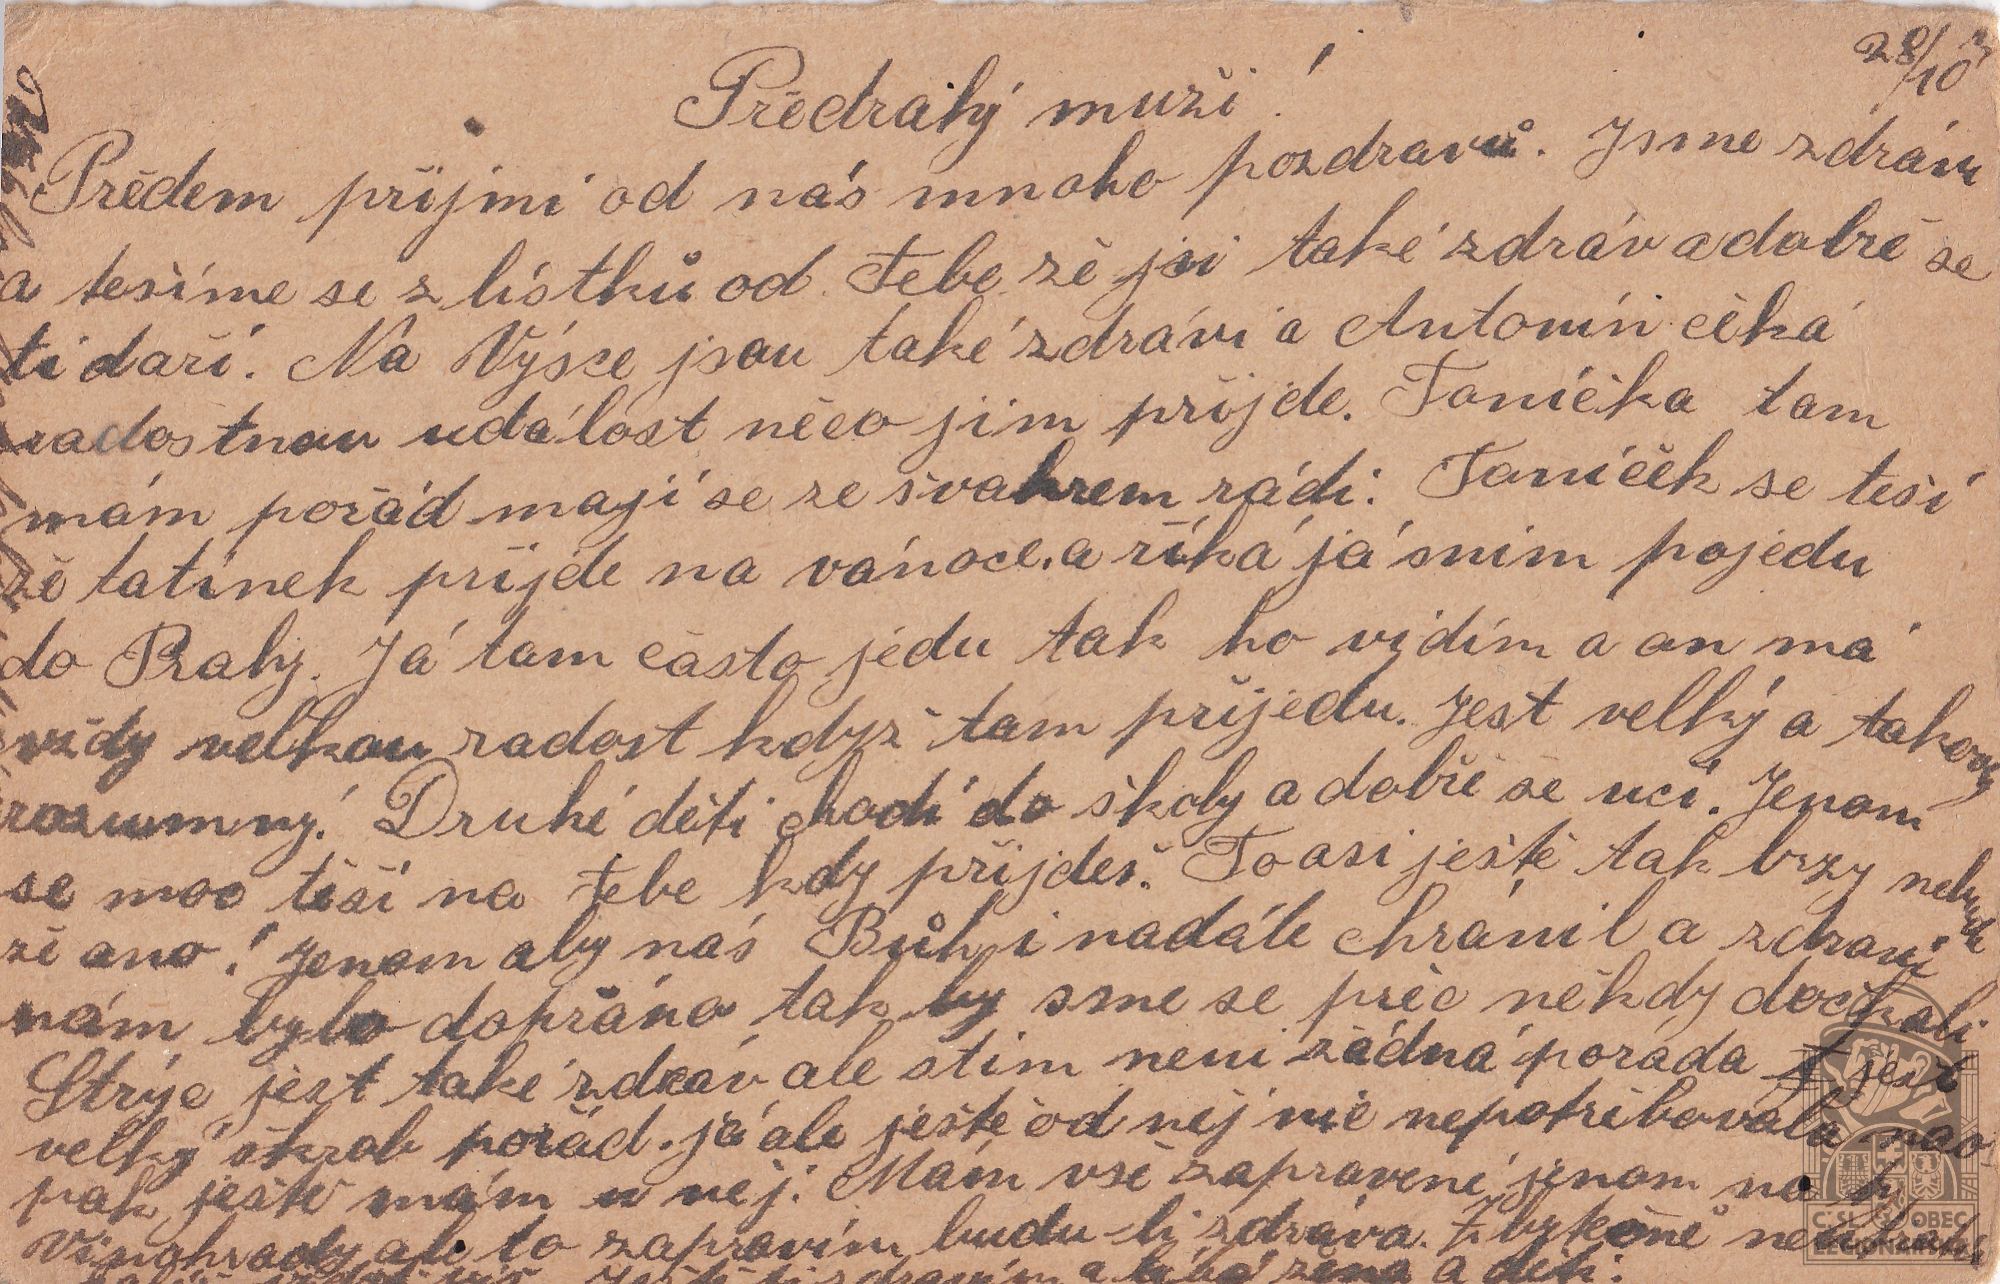 28/10
Předrahý muži!
Předem přijmi od nás mnoho pozdravů. Jsme zdrávi
a tešíme se z lístků od Tebe zě jsi také zdráv a dobrě se
ti daří. Na Výsce jsou také zdrávi a Antonín čěká
radostnou událost něco jim přijde. Toníčka tam
mám pořád mají se ze švahrem rádi. Toníček se teší
zě tatínek přijde na vánoce. a říká já snim pojedu
do Prahy. Já tam často jedu tak ho vidím a on má
vždy velkou radost když tam přijedu. Jest velký a takový
rozumný. Druhé děti chodí do školy a dobře se učí. Jenom
se moc těší na Tebe kdy přijdeš. To asi ještě tak brzy nebude
zě ano! Jenom aby nás Bůh i nadále chránil a zdraví
nám bylo dopřáno tak by sme se přec někdy dočkali
Strýc jest také zdráv ale stim neni žádná poráda jest
velký škrob pořád. já ale ještě od něj nic nepotřebovala nao-
pak ještě mám u něj. Mám vše zapravené jenom na ty
Vinohrady ale to zapravím budu-li zdráva.
Ještě ti zdravím a líbá žena a děti.